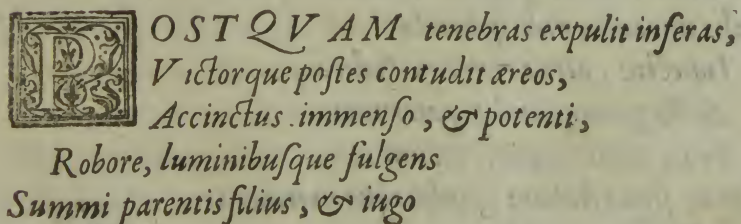 POSTQVAM tenebras expulit inferas,
Victorque poſtes contudit æreos,
Accinctus immenſo, & potenti,
Robore, luminibuſque fulgens
Summi parentis filius, & iugo